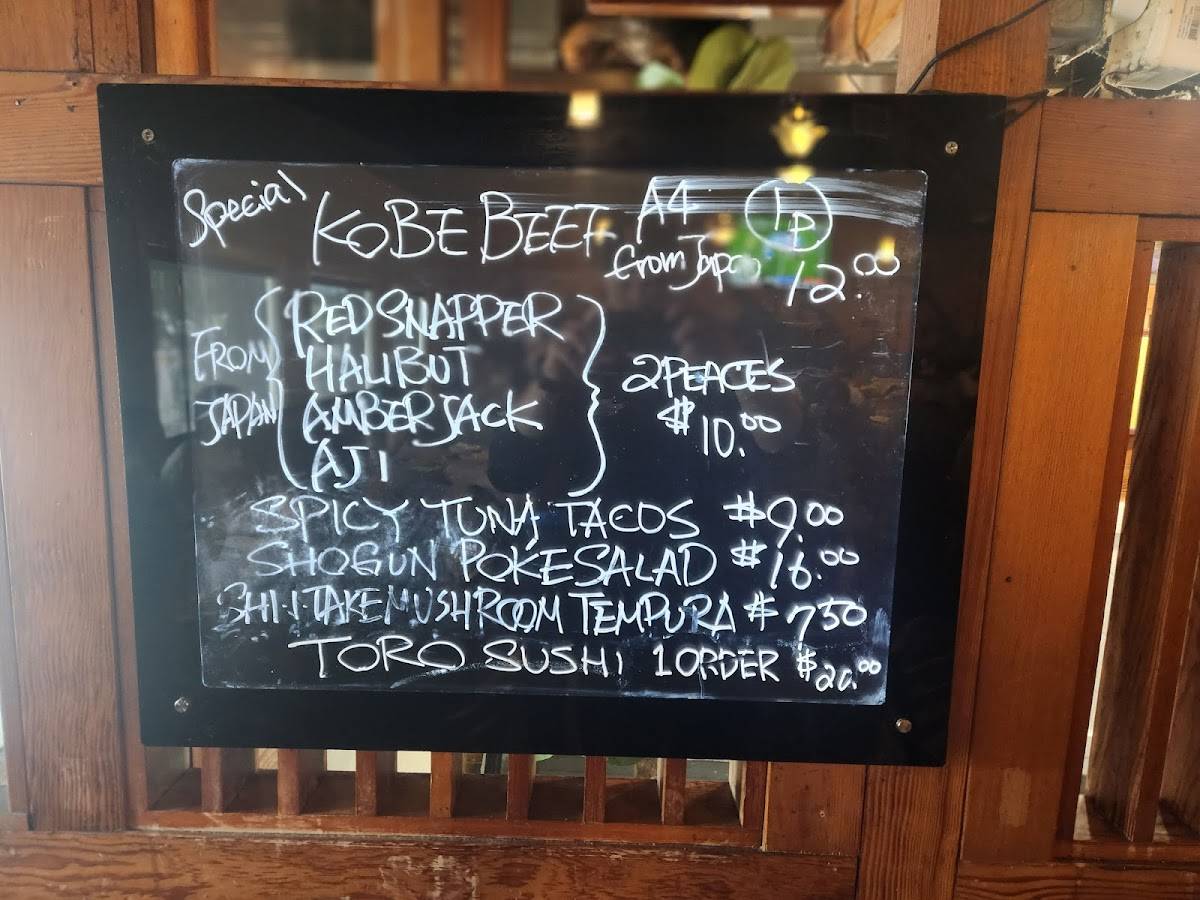 Special KOBE BEEF A4 1P
from Japan 12.00
FROM JAPAN
RED SNAPPER
HALIBUT
AMBERJACK
AJI
2 PEACES
$10.00
SPICY TUNA TACOS $9.00
SHOGUN POKE SALAD $16.00
SHIITAKE MUSHROOM TEMPURA $7.50
TORO SUSHI 1 ORDER $20.00